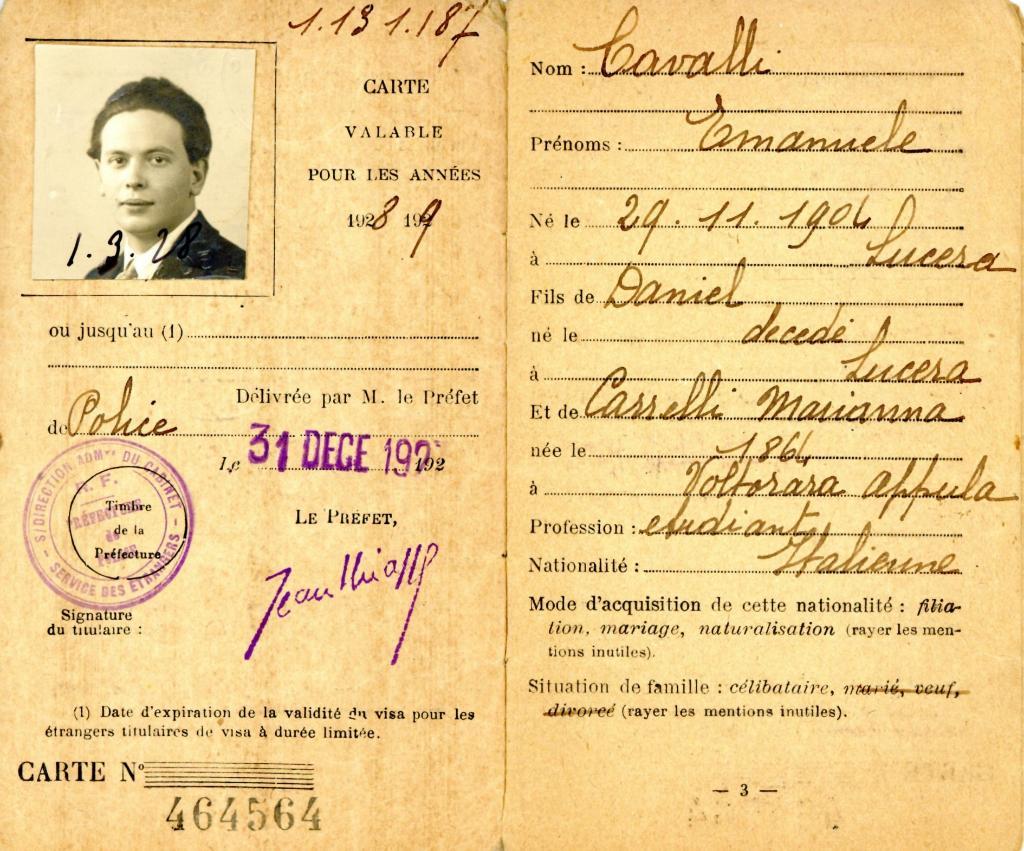 1.131.187
CARTE
VALABLE
POUR LES ANNÉES
1928 1929
1.3.28
ou jusqu'au (1)
Délivrée par M. le Préfet
de Police
Le 31 DECE 192
LE PRÉFET,
Jean Chiappe
S/DIRECTION ADMve DU CABINET
SERVICE DES ETRANGERS
R. F.
PRÉFECTURE
de
POLICE
Timbre
de la
Préfecture
Signature
du titulaire :
(1) Date d'expiration de la validité du visa pour les
étrangers titulaires de visa à durée limitée.
CARTE N°
464564
Nom : Cavalli
Prénoms : Emanuele
Né le 29.11.1904
à Lucera
Fils de Daniel
né le decedé
à Lucera
Et de Marianna
née le 1864
à Voltorara appula
Profession : etudiant
Nationalité : Italienne
Mode d'acquisition de cette nationalité : filia-
tion, mariage, naturalisation (rayer les men-
tions inutiles).
Situation de famille : célibataire, marié, veuf,
divorcé (rayer les mentions inutiles).
— 3 —